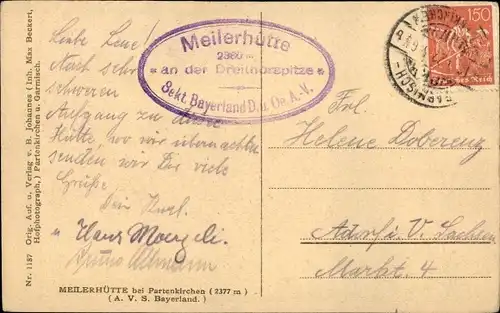 Meilerhütte
2380 m
« an der Dreithorspitze »
Sekt. Bayerland D. u. Oe. A. V.
150
Liebe Lene!
Nach sehr
schweren
Aufgang zu
Hütte, wo wir übernachten
senden wir Dir viele
Grüße
Dein Karl.
u. Hans
Bruno
Frl.
Helene Doberenz
Adorf i. V. Sachsen
Markt. 4
MEILERHÜTTE bei Partenkirchen (2377 m)
(A. V. S. Bayerland.)
Nr. 1187 Orig. Auf. u. Verlag v. B. Johannes (Inh. Max Beckert,
Hofphotograph,) Partenkirchen u. Garmisch.